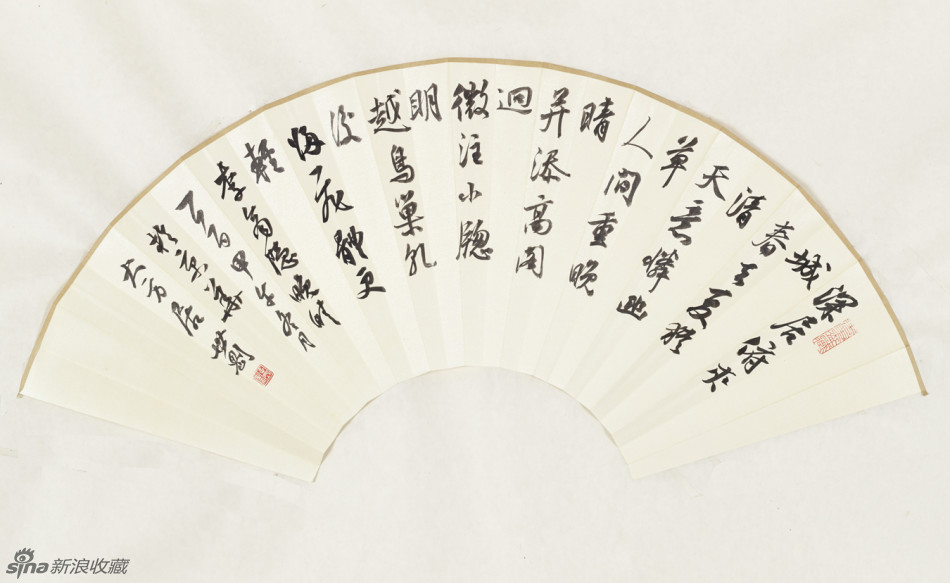 深居俯夾
城
春去夏猶
清
天意憐幽
草
人間重晚
晴
并添高閣
迥
微注小牕
明
越鳥巢乾
後
歸飛體更
輕
李商隱晚晴
甲午冬月
於京華
大方居
sina新浪收藏